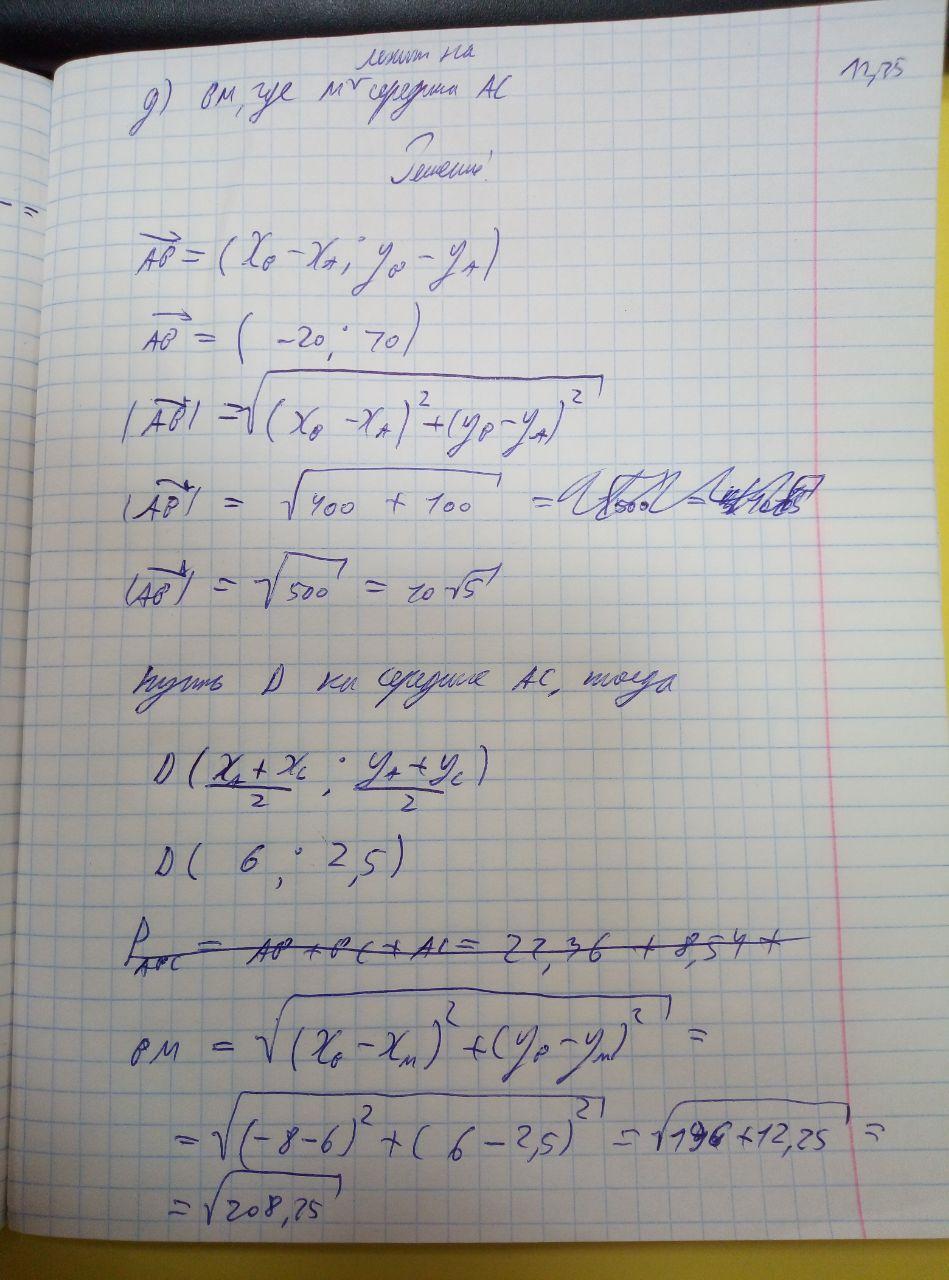 лежит на
12,25
д) BM, где M середина AC
Решение:
AB = (x_B - x_A; y_B - y_A)
AB = (-20; 10)
|AB| = √((x_B - x_A)² + (y_B - y_A)²)
|AB| = √(400 + 100) =
|AB| = √500 = 10√5
Пусть D на середине AC, тогда
D((x_A + x_C)/2; (y_A + y_C)/2)
D( 6; 2,5)
P_ABC = AB + BC + AC = 22,36 + 8,54 +
BM = √((x_B - x_M)² + (y_B - y_M)²) =
= √((-8-6)² + (6-2,5)²) = √(196 + 12,25) =
= √208,25